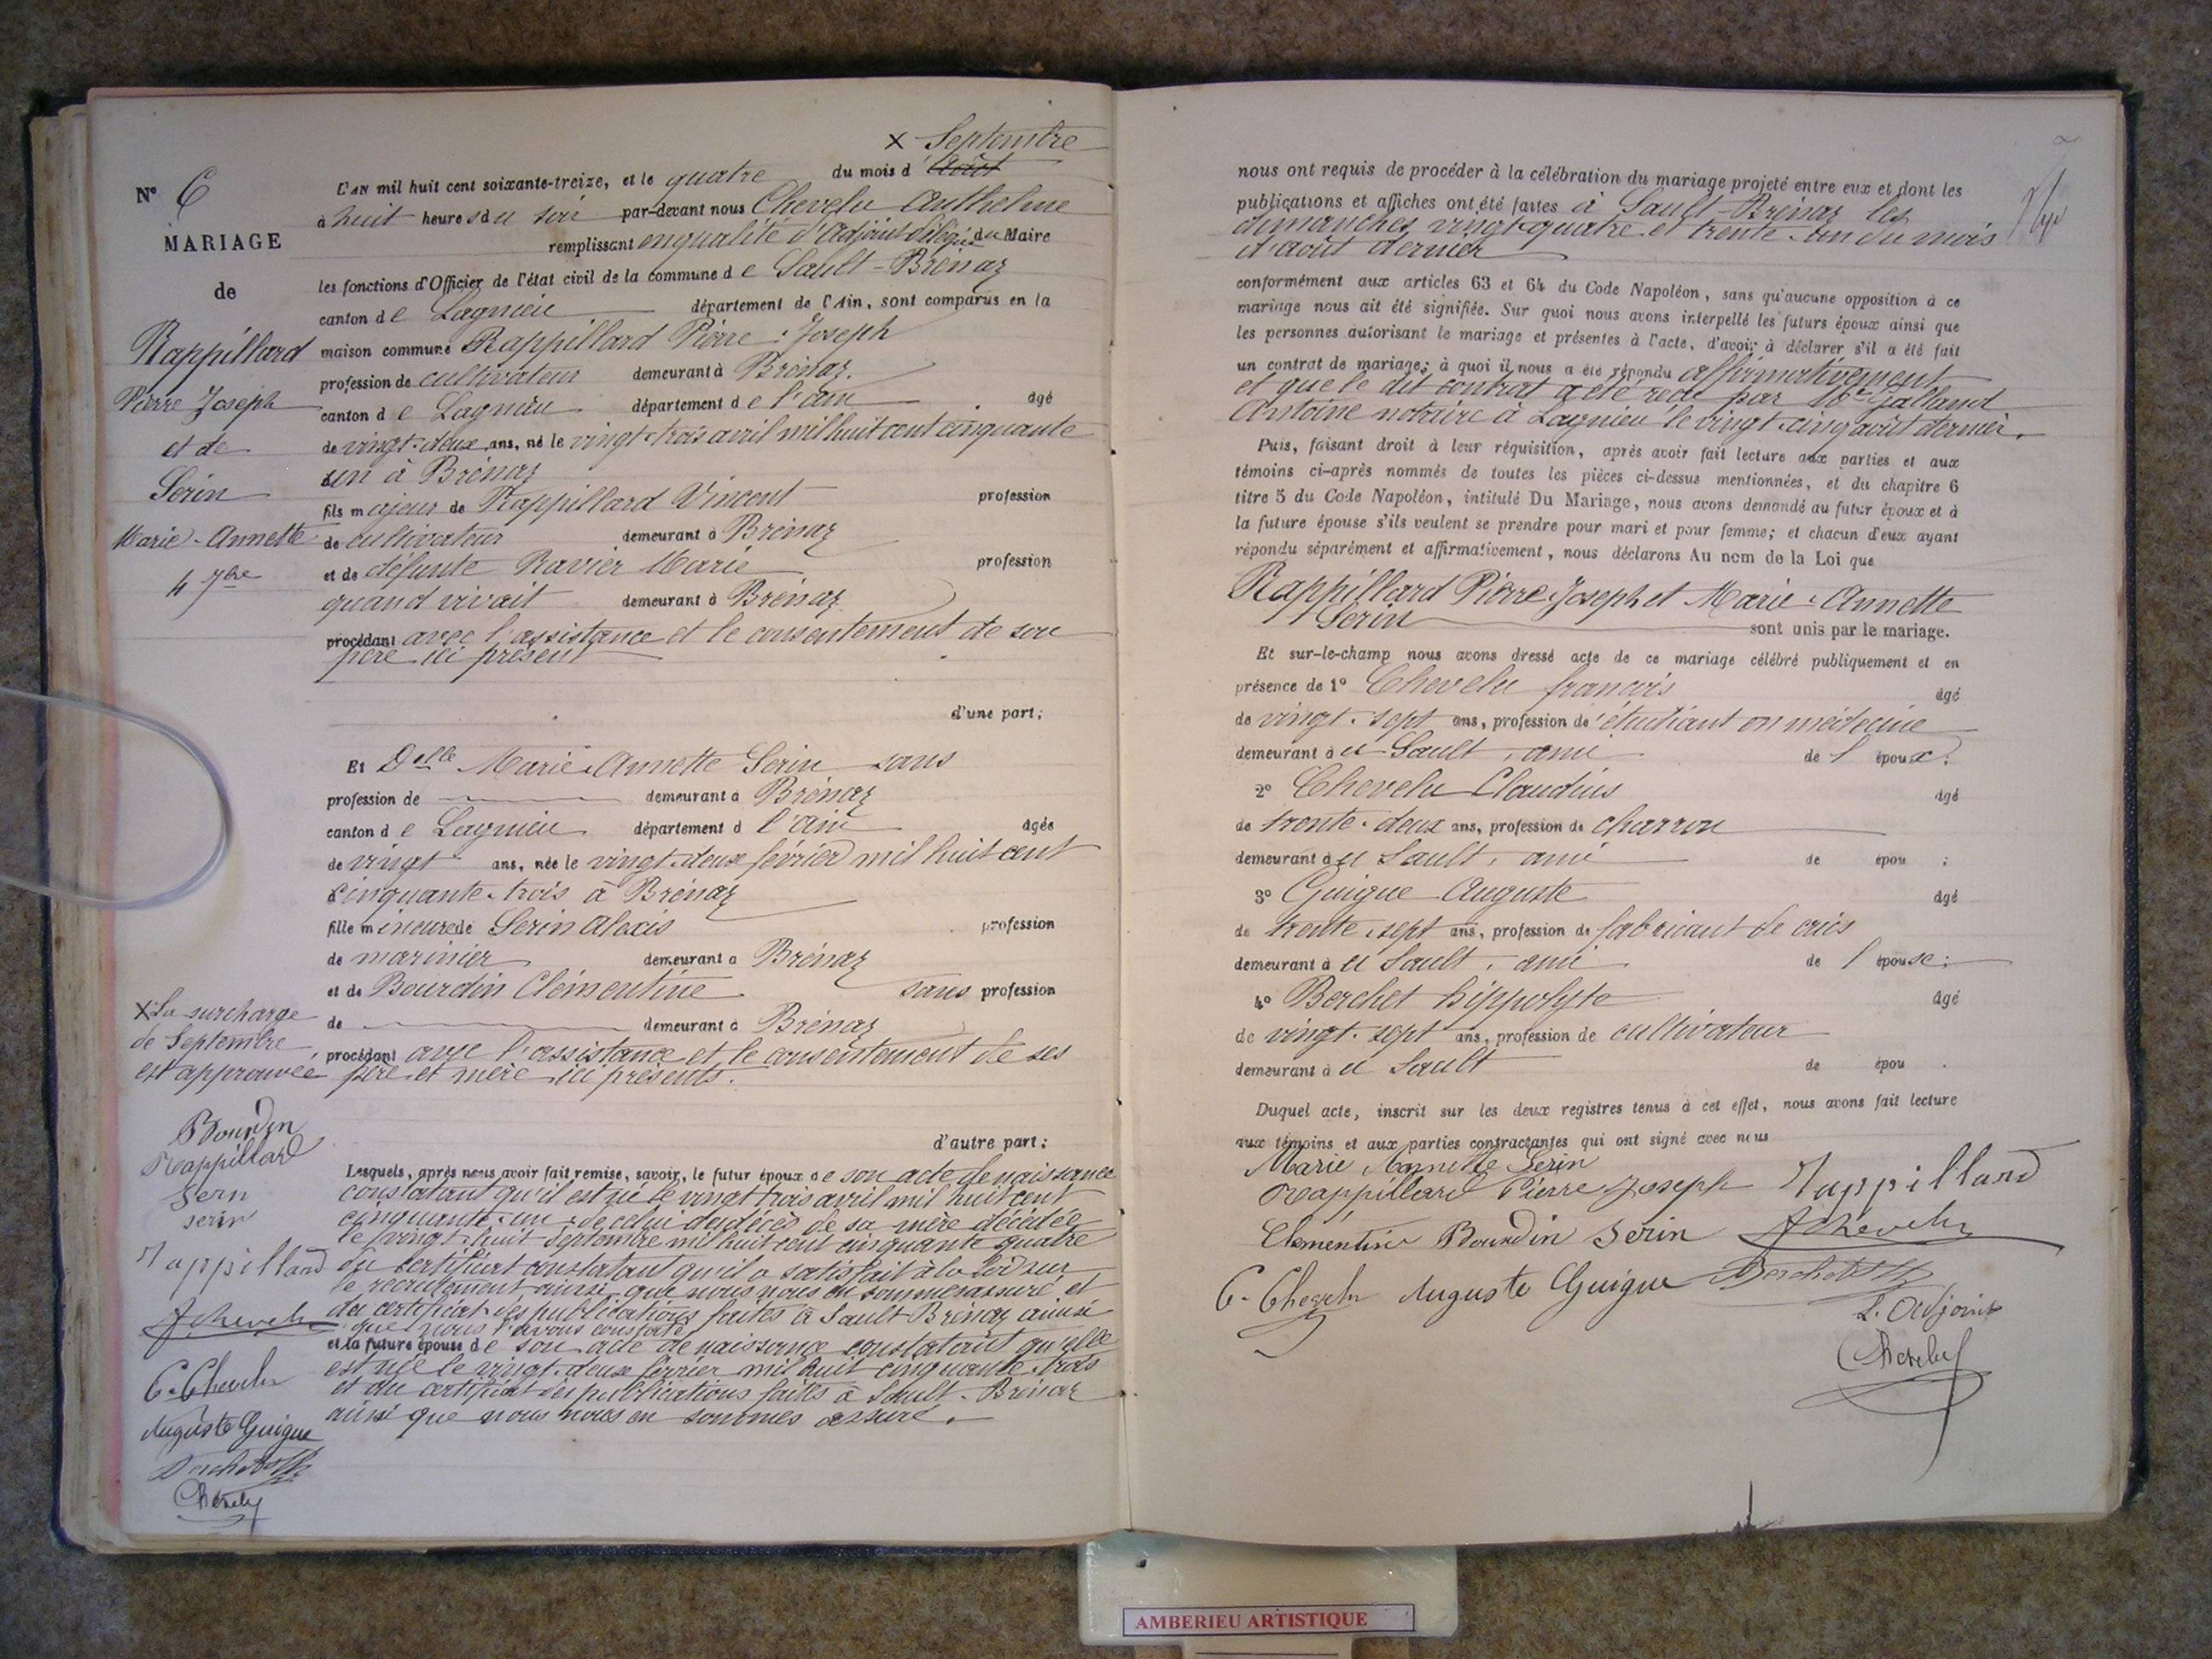 N° 6
MARIAGE
de
Rappillard
Pierre Joseph
et de
Serin
Marie-Annette
4 7bre
X La surcharge
de Septembre
est approuvée
Bourdin
Rappillard
Serin
serin
Rappillard
C. Chevelu
Auguste Guigue
Chevelu
X Septembre
L'AN mil huit cent soixante-treize, et le quatre du mois d'Août
à huit heures du soir par-devant nous Chevelu Anthelme
remplissant en qualité d'adjoint délégué du Maire
les fonctions d'Officier de l'état civil de la commune de Sault-Brénaz
canton de Lagnieu département de l'Ain, sont comparus en la
maison commune Rappillard Pierre-Joseph
profession de cultivateur demeurant à Brénaz.
canton de Lagnieu département de l'ain âgé
de vingt-deux ans, né le vingt-trois avril mil huit cent cinquante
un à Brénaz
fils majeur de Rappillard Vincent profession
de cultivateur demeurant à Brénaz
et de défunte Ravier Marie profession
quand vivait demeurant à Brénaz
procédant avec l'assistance et le consentement de son
père ici présent
d'une part;
Et Delle Marie-Annette Serin sans
profession de demeurant à Brénaz
canton de Lagnieu département d l'ain âgée
de vingt ans, née le vingt-deux février mil huit cent
cinquante-trois à Brénaz
fille mineure de Serin Alexis profession
de marinier demeurant à Brénaz
et de Bourdin Clémentine sans profession
de demeurant à Brénaz
procédant avec l'assistance et le consentement de ses
père et mère ici présents.
d'autre part;
Lesquels, après nous avoir fait remise, savoir, le futur époux de son acte de naissance
constatant qu'il est né le vingt trois avril mil huit cent
cinquante-un, de celui du décès de sa mère décédée
le vingt-huit septembre mil huit cent cinquante quatre
du certificat constatant qu'il a satisfait à la loi sur
le recrutement ainsi que nous nous en sommes assuré et
du certificat des publications faites à Sault-Brénaz ainsi
que nous l'avons constaté
et la future épouse de son acte de naissance constatant qu'elle
est née le vingt-deux février mil huit cinquante-trois
et du certificat des publications faites à Sault-Brénaz
ainsi que nous nous en sommes assuré.
nous ont requis de procéder à la célébration du mariage projeté entre eux et dont les
publications et affiches ont été faites à Sault-Brénaz les
dimanches vingt-quatre et trente-un du mois
d'août dernier
conformément aux articles 63 et 64 du Code Napoléon, sans qu'aucune opposition à ce
mariage nous ait été signifiée. Sur quoi nous avons interpellé les futurs époux ainsi que
les personnes autorisant le mariage et présentes à l'acte, d'avoir à déclarer s'il a été fait
un contrat de mariage; à quoi il nous a été répondu affirmativement
et que le dit contrat a été reçu par Me Galland
Antoine notaire à Lagnieu le vingt-cinq août dernier.
Puis, faisant droit à leur réquisition, après avoir fait lecture aux parties et aux
témoins ci-après nommés de toutes les pièces ci-dessus mentionnées, et du chapitre 6
titre 5 du Code Napoléon, intitulé Du Mariage, nous avons demandé au futur époux et à
la future épouse s'ils veulent se prendre pour mari et pour femme; et chacun d'eux ayant
répondu séparément et affirmativement, nous déclarons Au nom de la Loi que
Rappillard Pierre-Joseph et Marie-Annette
Serin sont unis par le mariage.
Et sur-le-champ nous avons dressé acte de ce mariage célébré publiquement et en
présence de 1° Chevelu françois âgé
de vingt-sept ans, profession de étudiant en médecine
demeurant à u Sault, ami de l époux;
2° Chevelu Claudius âgé
de trente-deux ans, profession de charron
demeurant à u Sault, ami de épou ;
3° Guigue Auguste âgé
de trente-sept ans, profession de fabricant de crics
demeurant à u Sault, ami de l épouse;
4° Berchet hippolyte âgé
de vingt-sept ans, profession de cultivateur
demeurant à u Sault de épou .
Duquel acte, inscrit sur les deux registres tenus à cet effet, nous avons fait lecture
aux témoins et aux parties contractantes qui ont signé avec nous
Marie Annette Serin
Rappillard Pierre Joseph Rappillard
Clémentine Bourdin Serin F Chevelu
C. Chevelu Auguste Guigue Berchet
L. Adjoint
Chevelu
AMBERIEU ARTISTIQUE